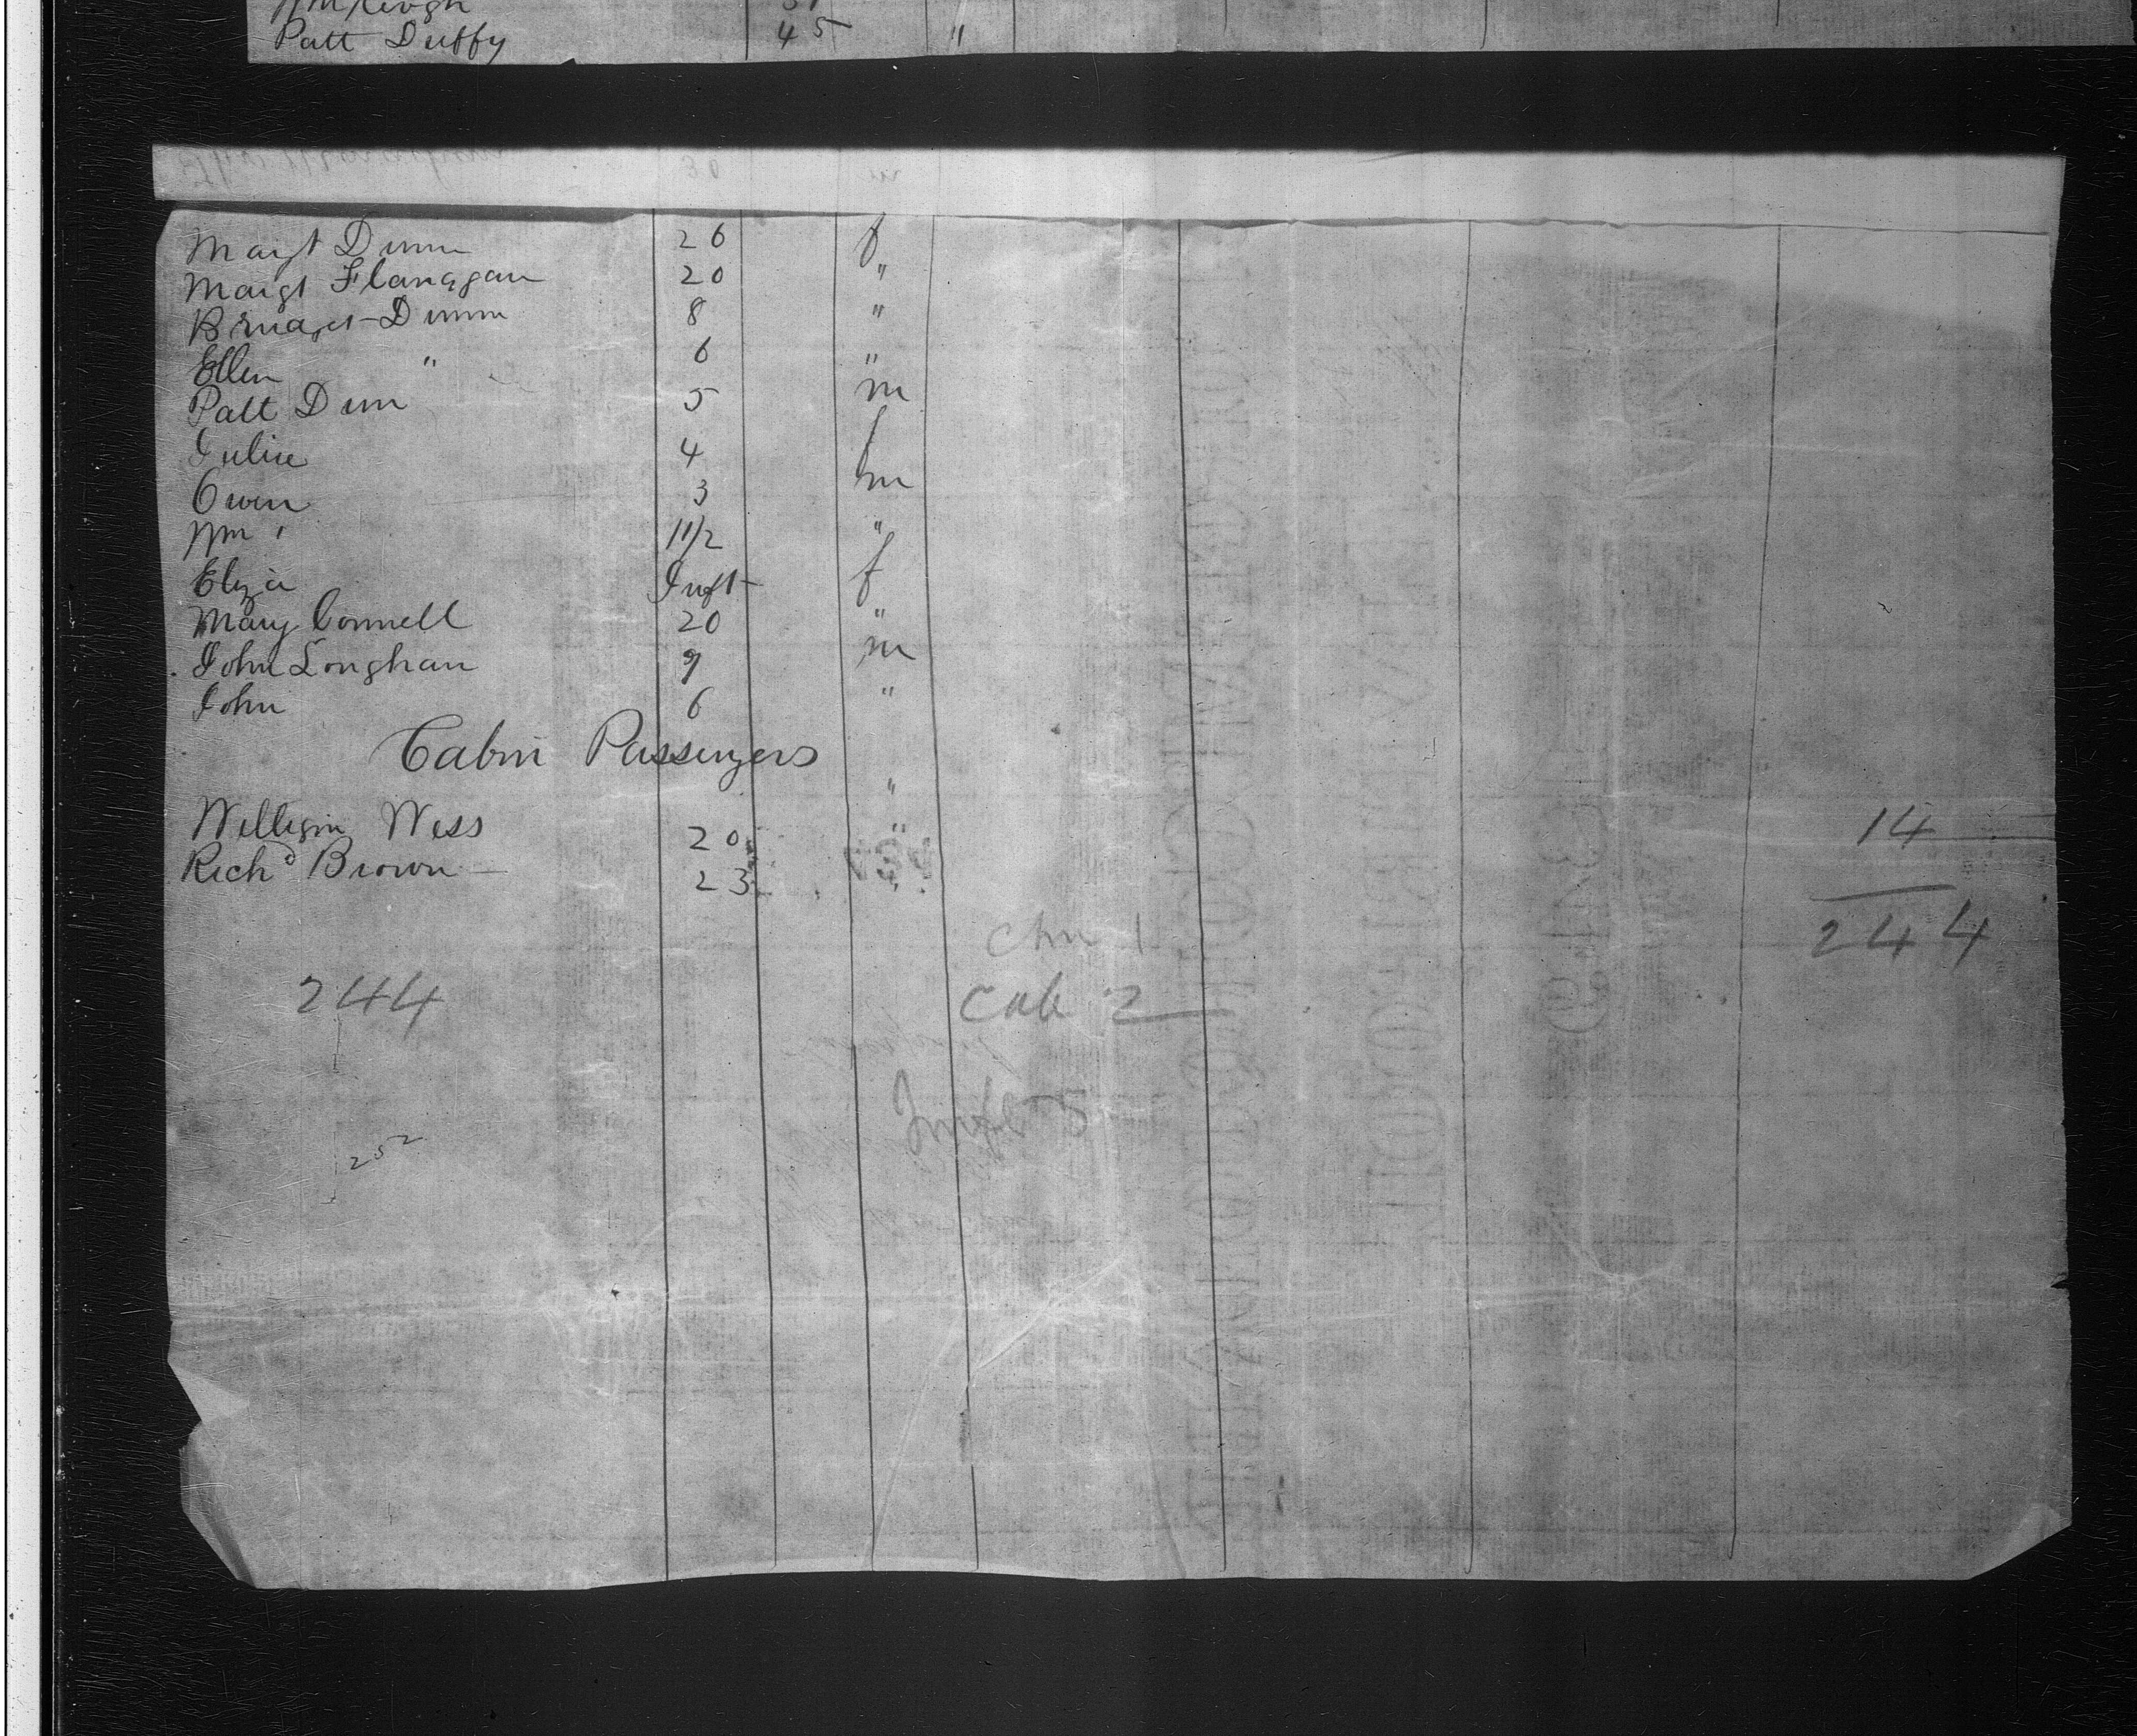 Patt Duffy 45 "
30 m
Margt Dunn 26 f
Margt Flanagan 20 "
Bridget Dunn 8 "
Ellen " 6 "
Patt Dunn 5 m
Julia 4 f
Owen 3 m
Wm " 1 1/2 "
Eliza Inft f
Mary Connell 20 "
John Longhan 9 m
John 6 "
Cabin Passengers
"
William Wess 20 "
Richd Brown 23 "
14
244
Chn 1
Cab 2
244
Inft 5
252